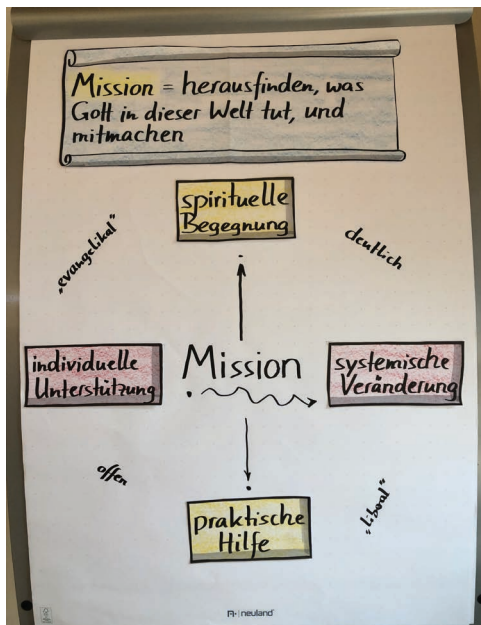 Mission = herausfinden, was
Gott in dieser Welt tut, und
mitmachen
spirituelle
Begegnung
„evangelikal“
deutlich
individuelle
Unterstützung
Mission
systemische
Veränderung
offen
„liberal“
praktische
Hilfe
neuland